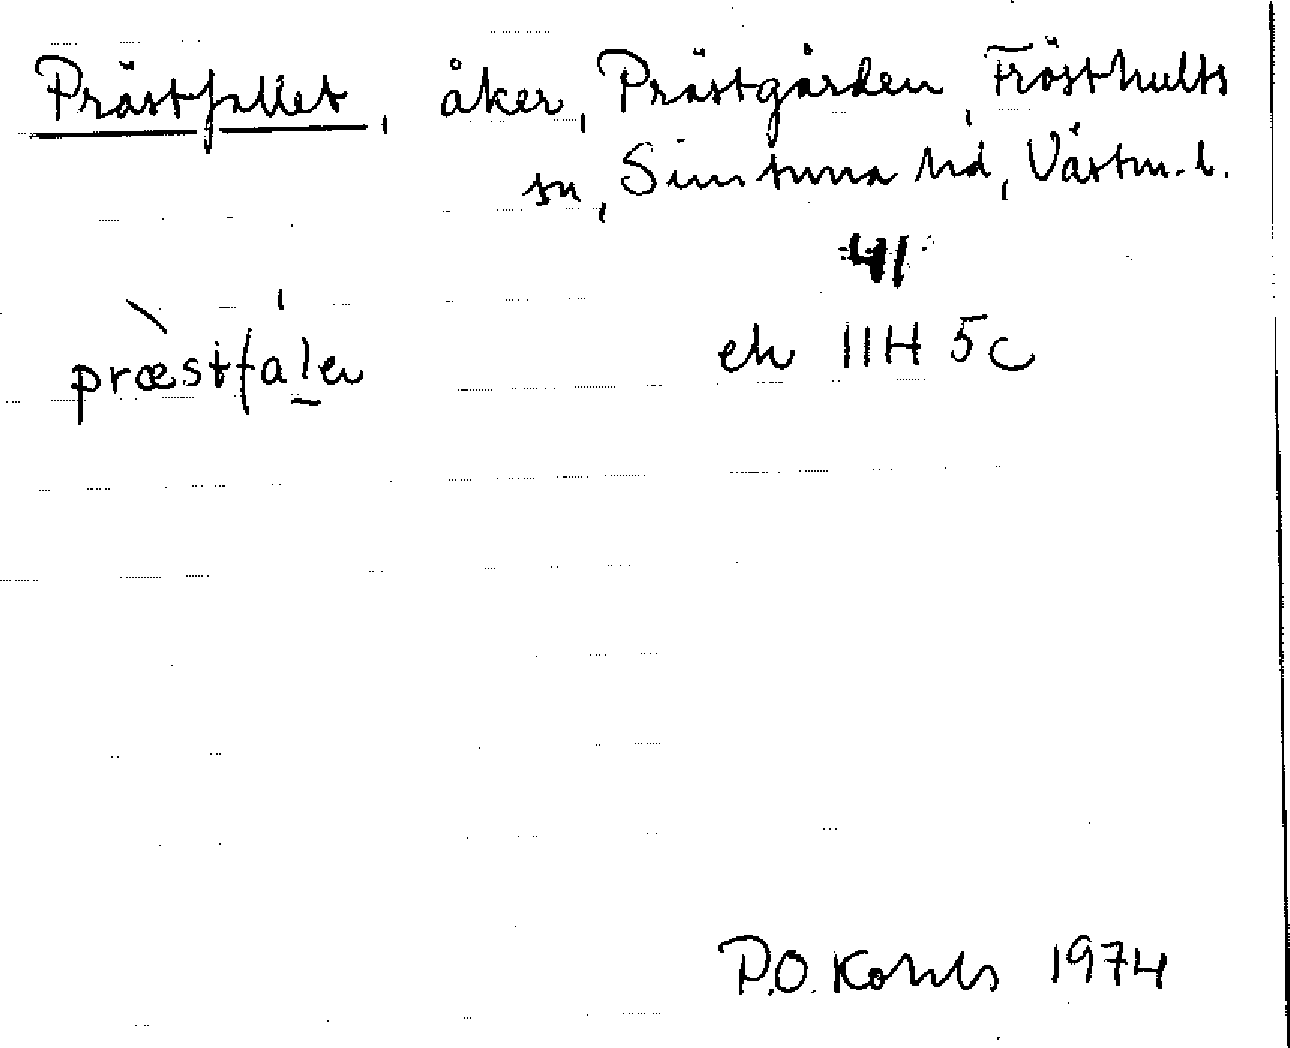 Prästfallet, åker, Prästgården, Frösthults
sn, Simtuna hd, Västm. l.
41
præstfalen
ek 11H 5c
P.O. Kohls 1974